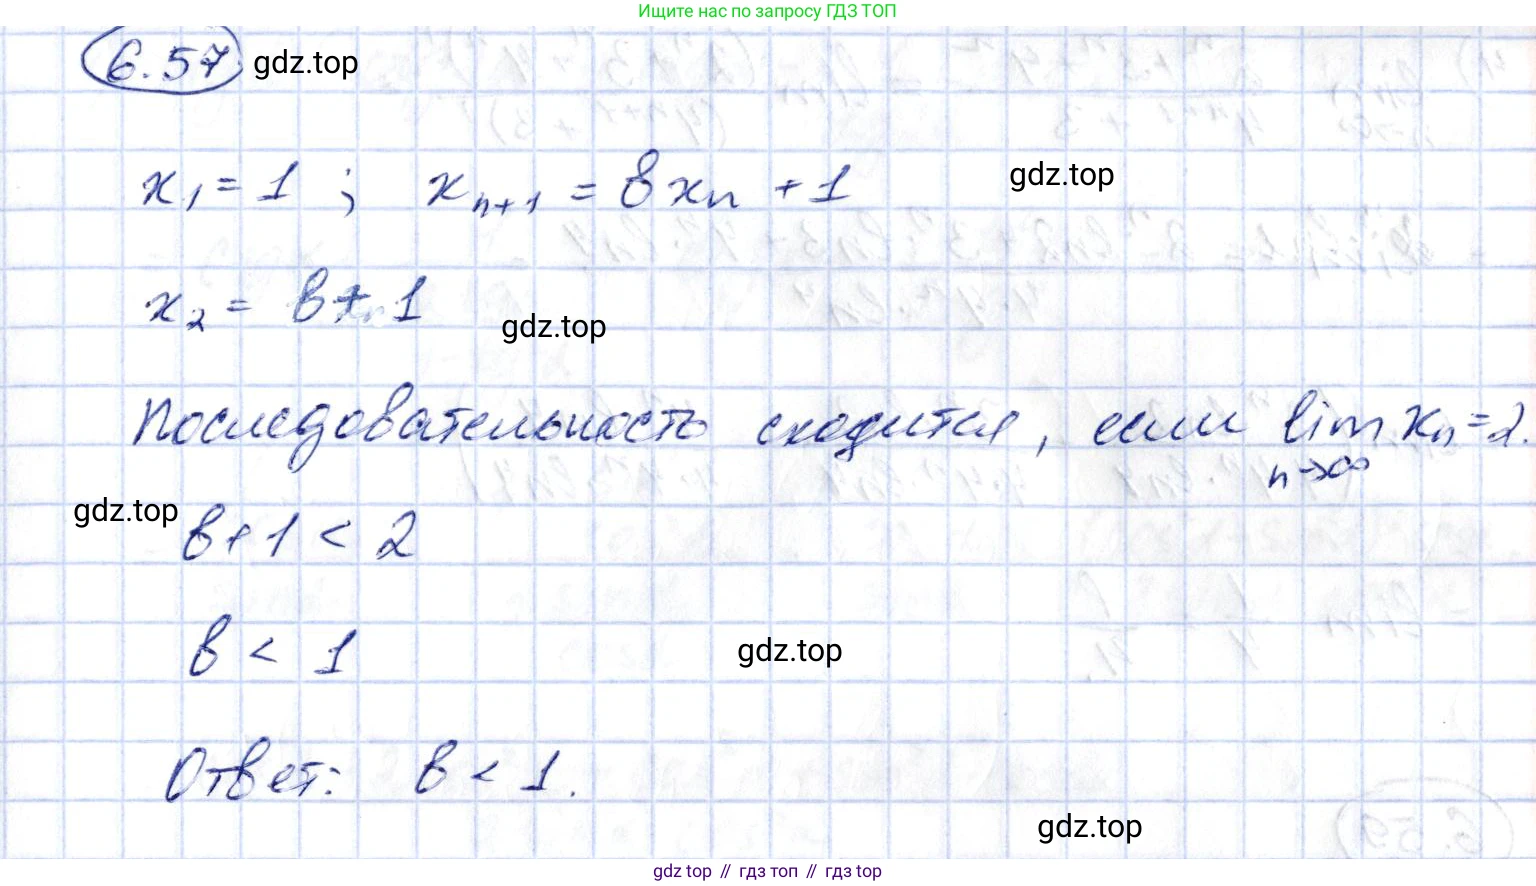 Ищите нас по запросу ГДЗ ТОП
6.57 gdz.top
x₁ = 1 ; xₙ₊₁ = bxₙ + 1 gdz.top
x₂ = b + 1
gdz.top
Последовательность сходится, если lim xₙ = 2.
n→∞
gdz.top
b + 1 < 2
b < 1
gdz.top
Ответ: b < 1.
gdz.top
gdz top // гдз топ // гдз top